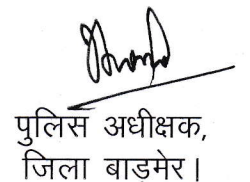 पुलिस अधीक्षक,
जिला बाडमेर।